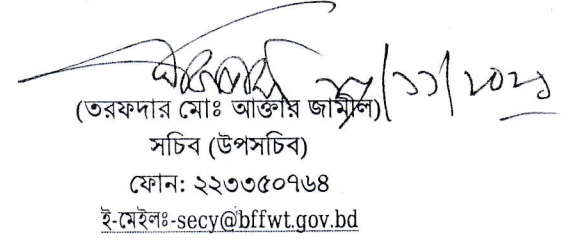 (তরফদার মোঃ আক্তার জামীল)
সচিব (উপসচিব)
ফোন: ২২৩৩৫০৭৬৪
ই-মেইলঃ-secy@bffwt.gov.bd